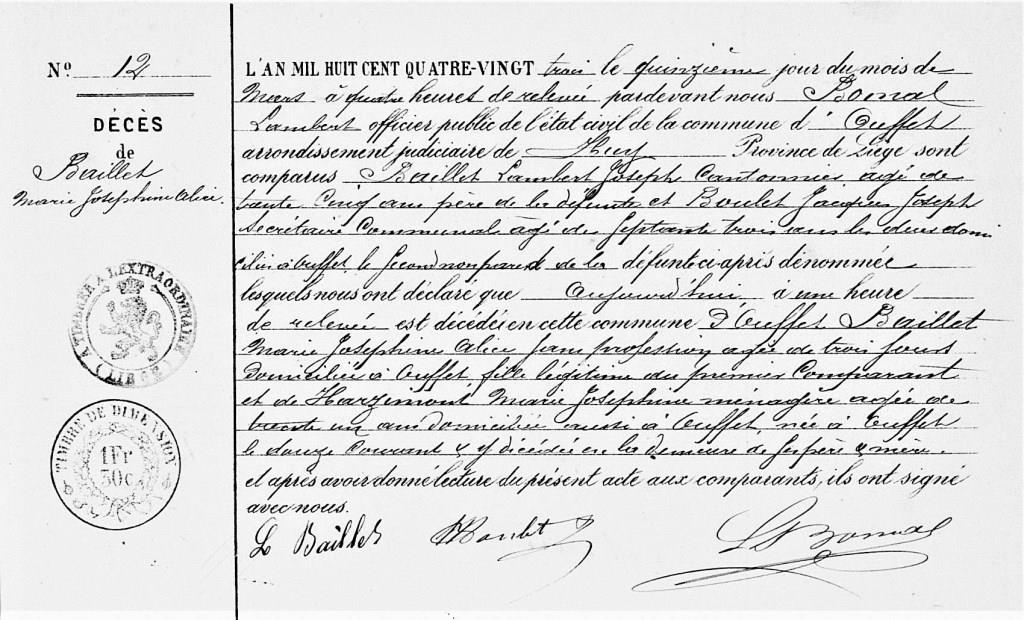 Nº 12
DÉCÈS
de
Baillet
Marie Josephine Alice.
A TIMBRE A L'EXTRAORDINAIRE
(LIEGE)
TIMBRE DE DIMENSION
1Fr
30c
L'AN MIL HUIT CENT QUATRE-VINGT trois le quinzième jour du mois de
Mars à quatre heures de relevée pardevant nous Bomal
Lambert officier public de l'état civil de la commune d'Ouffet
arrondissement judiciaire de Huy Province de Liége sont
comparus Baillet Lambert Joseph Cantonnier agé de
trente cinq ans père de la défunte et Boulet Jacques Joseph
Secrétaire Communal âgé de Septante trois ans les deux domi
ciliés à Ouffet, le second non parent de la défunte ci-après dénommée
lesquels nous ont déclaré que aujourd'hui à une heure
de relevée est décédée en cette commune d'Ouffet Baillet
Marie Josephine Alice sans profession agée de trois jours
domiciliée à Ouffet, fille légitime du premier Comparant
et de Harzemont Marie Josephine ménagère agée de
trente un ans domiciliée aussi à Ouffet, née à Ouffet
le douze Courant & y décédée en la demeure de ses père & mère.
et après avoir donné lecture du présent acte aux comparants, ils ont signé
avec nous.
L Baillet Boulet L Bomal